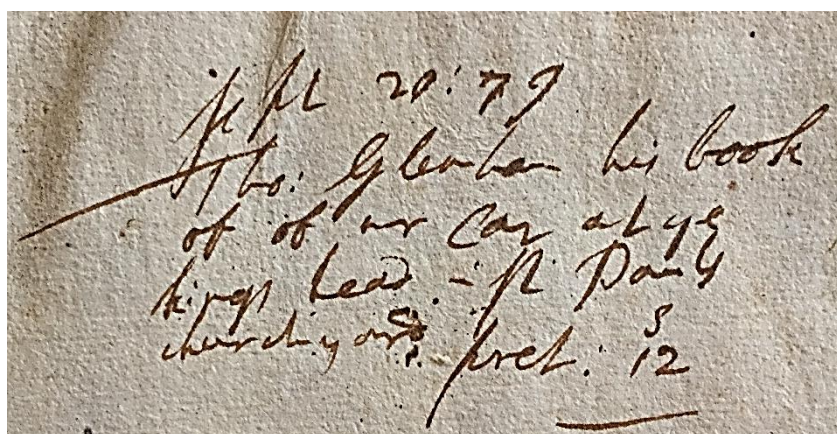 sept 20: 79
Tho: Glenham his book
of of mr Car at ye
kings head - st Pauls
churchyard. pret: 12 s